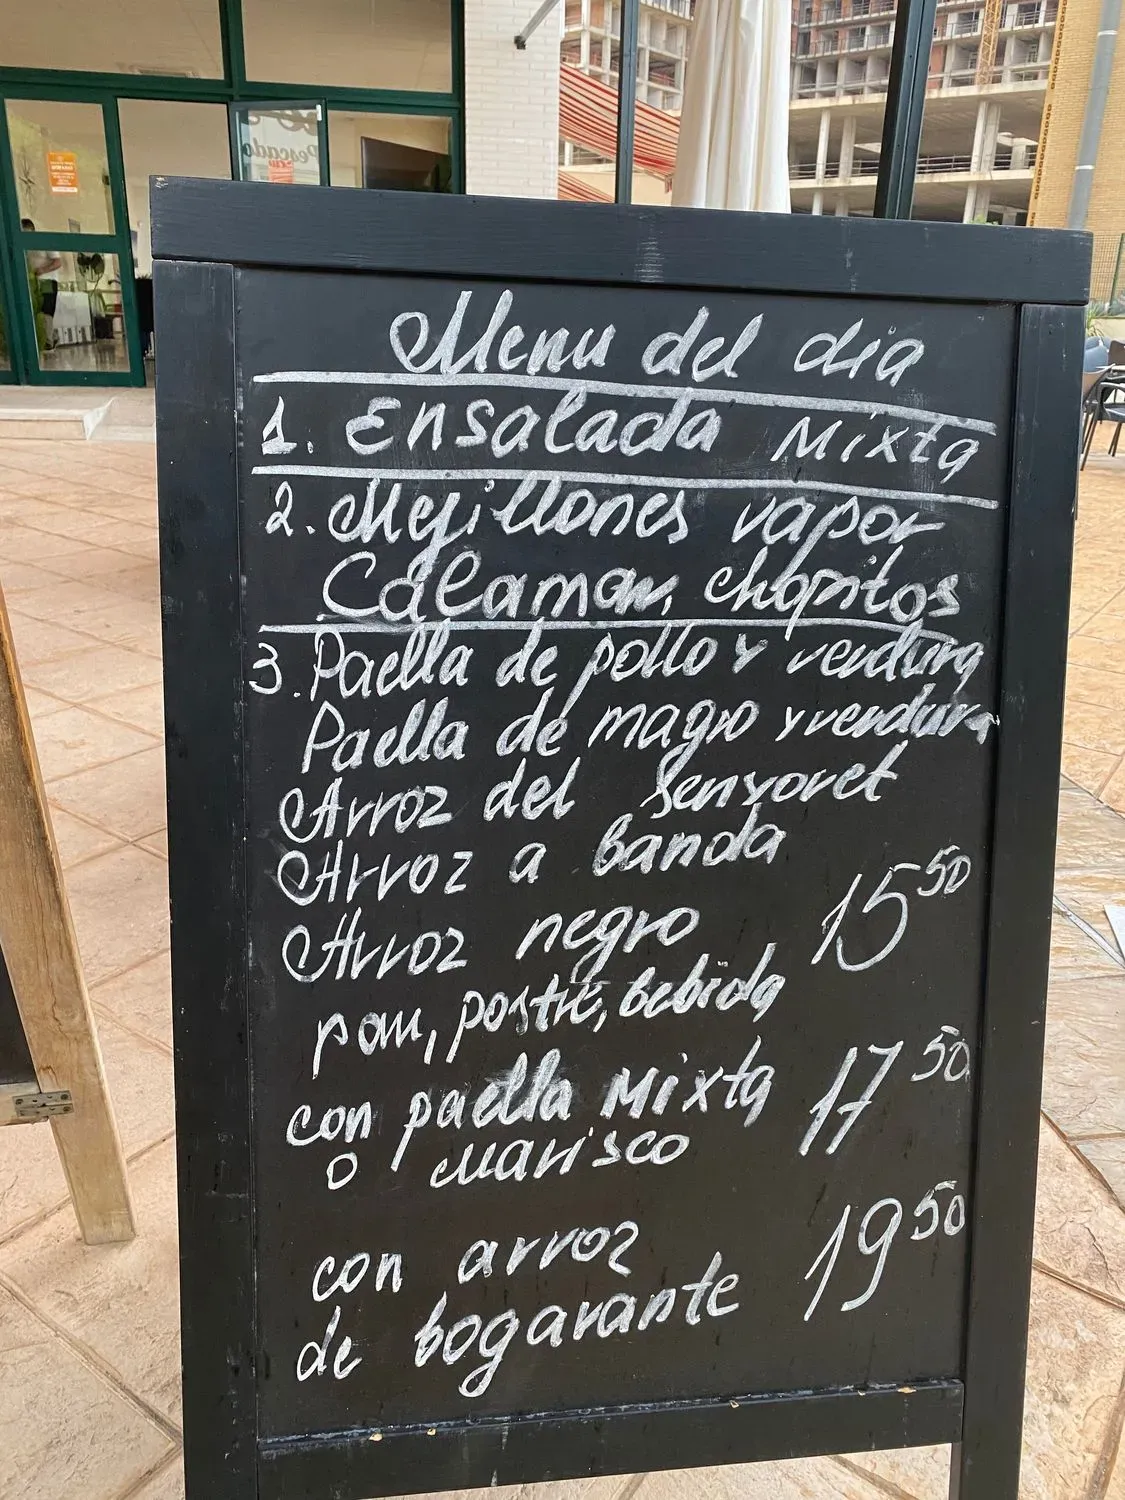 Pescado
Menu del dia
1. Ensalada Mixta
2. Mejillones vapor
Calamar, chopitos
3. Paella de pollo y verdura
Paella de magro y verdura
Arroz del Senyoret
Arroz a banda
Arroz negro 15 50
pan, postre, bebida
con paella Mixta 17 50
o Marisco
con arroz 19 50
de bogavante